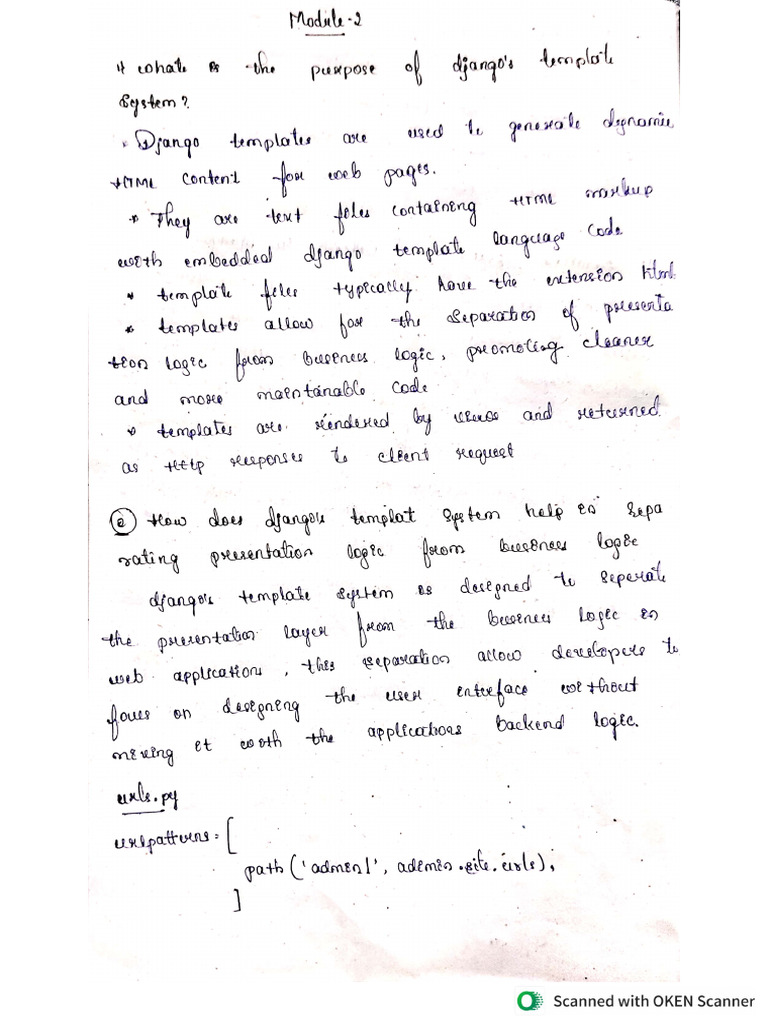 Module-2
1) what is the purpose of django's template
System?
• Django templates are used to generate dynamic
HTML content for web pages.
* They are text files containing HTML markup
with embedded django template language code
* template files typically have the extension html.
* templates allow for the separation of presenta
tion logic from business logic, promoting cleaner
and more maintanable code
* templates are rendered by views and returned
as Http responses to client request
② How does django's templat system help in sepa
rating presentation logic from business logic
django's template system is designed to seperate
the presentation layer from the business logic in
web application, this separation allow developers to
focus on designing the user interface without
mixing it with the applications backend logic.
urls.py
urlpatterns = [
path ('admin/', admin.site.urls),
]
Scanned with OKEN Scanner